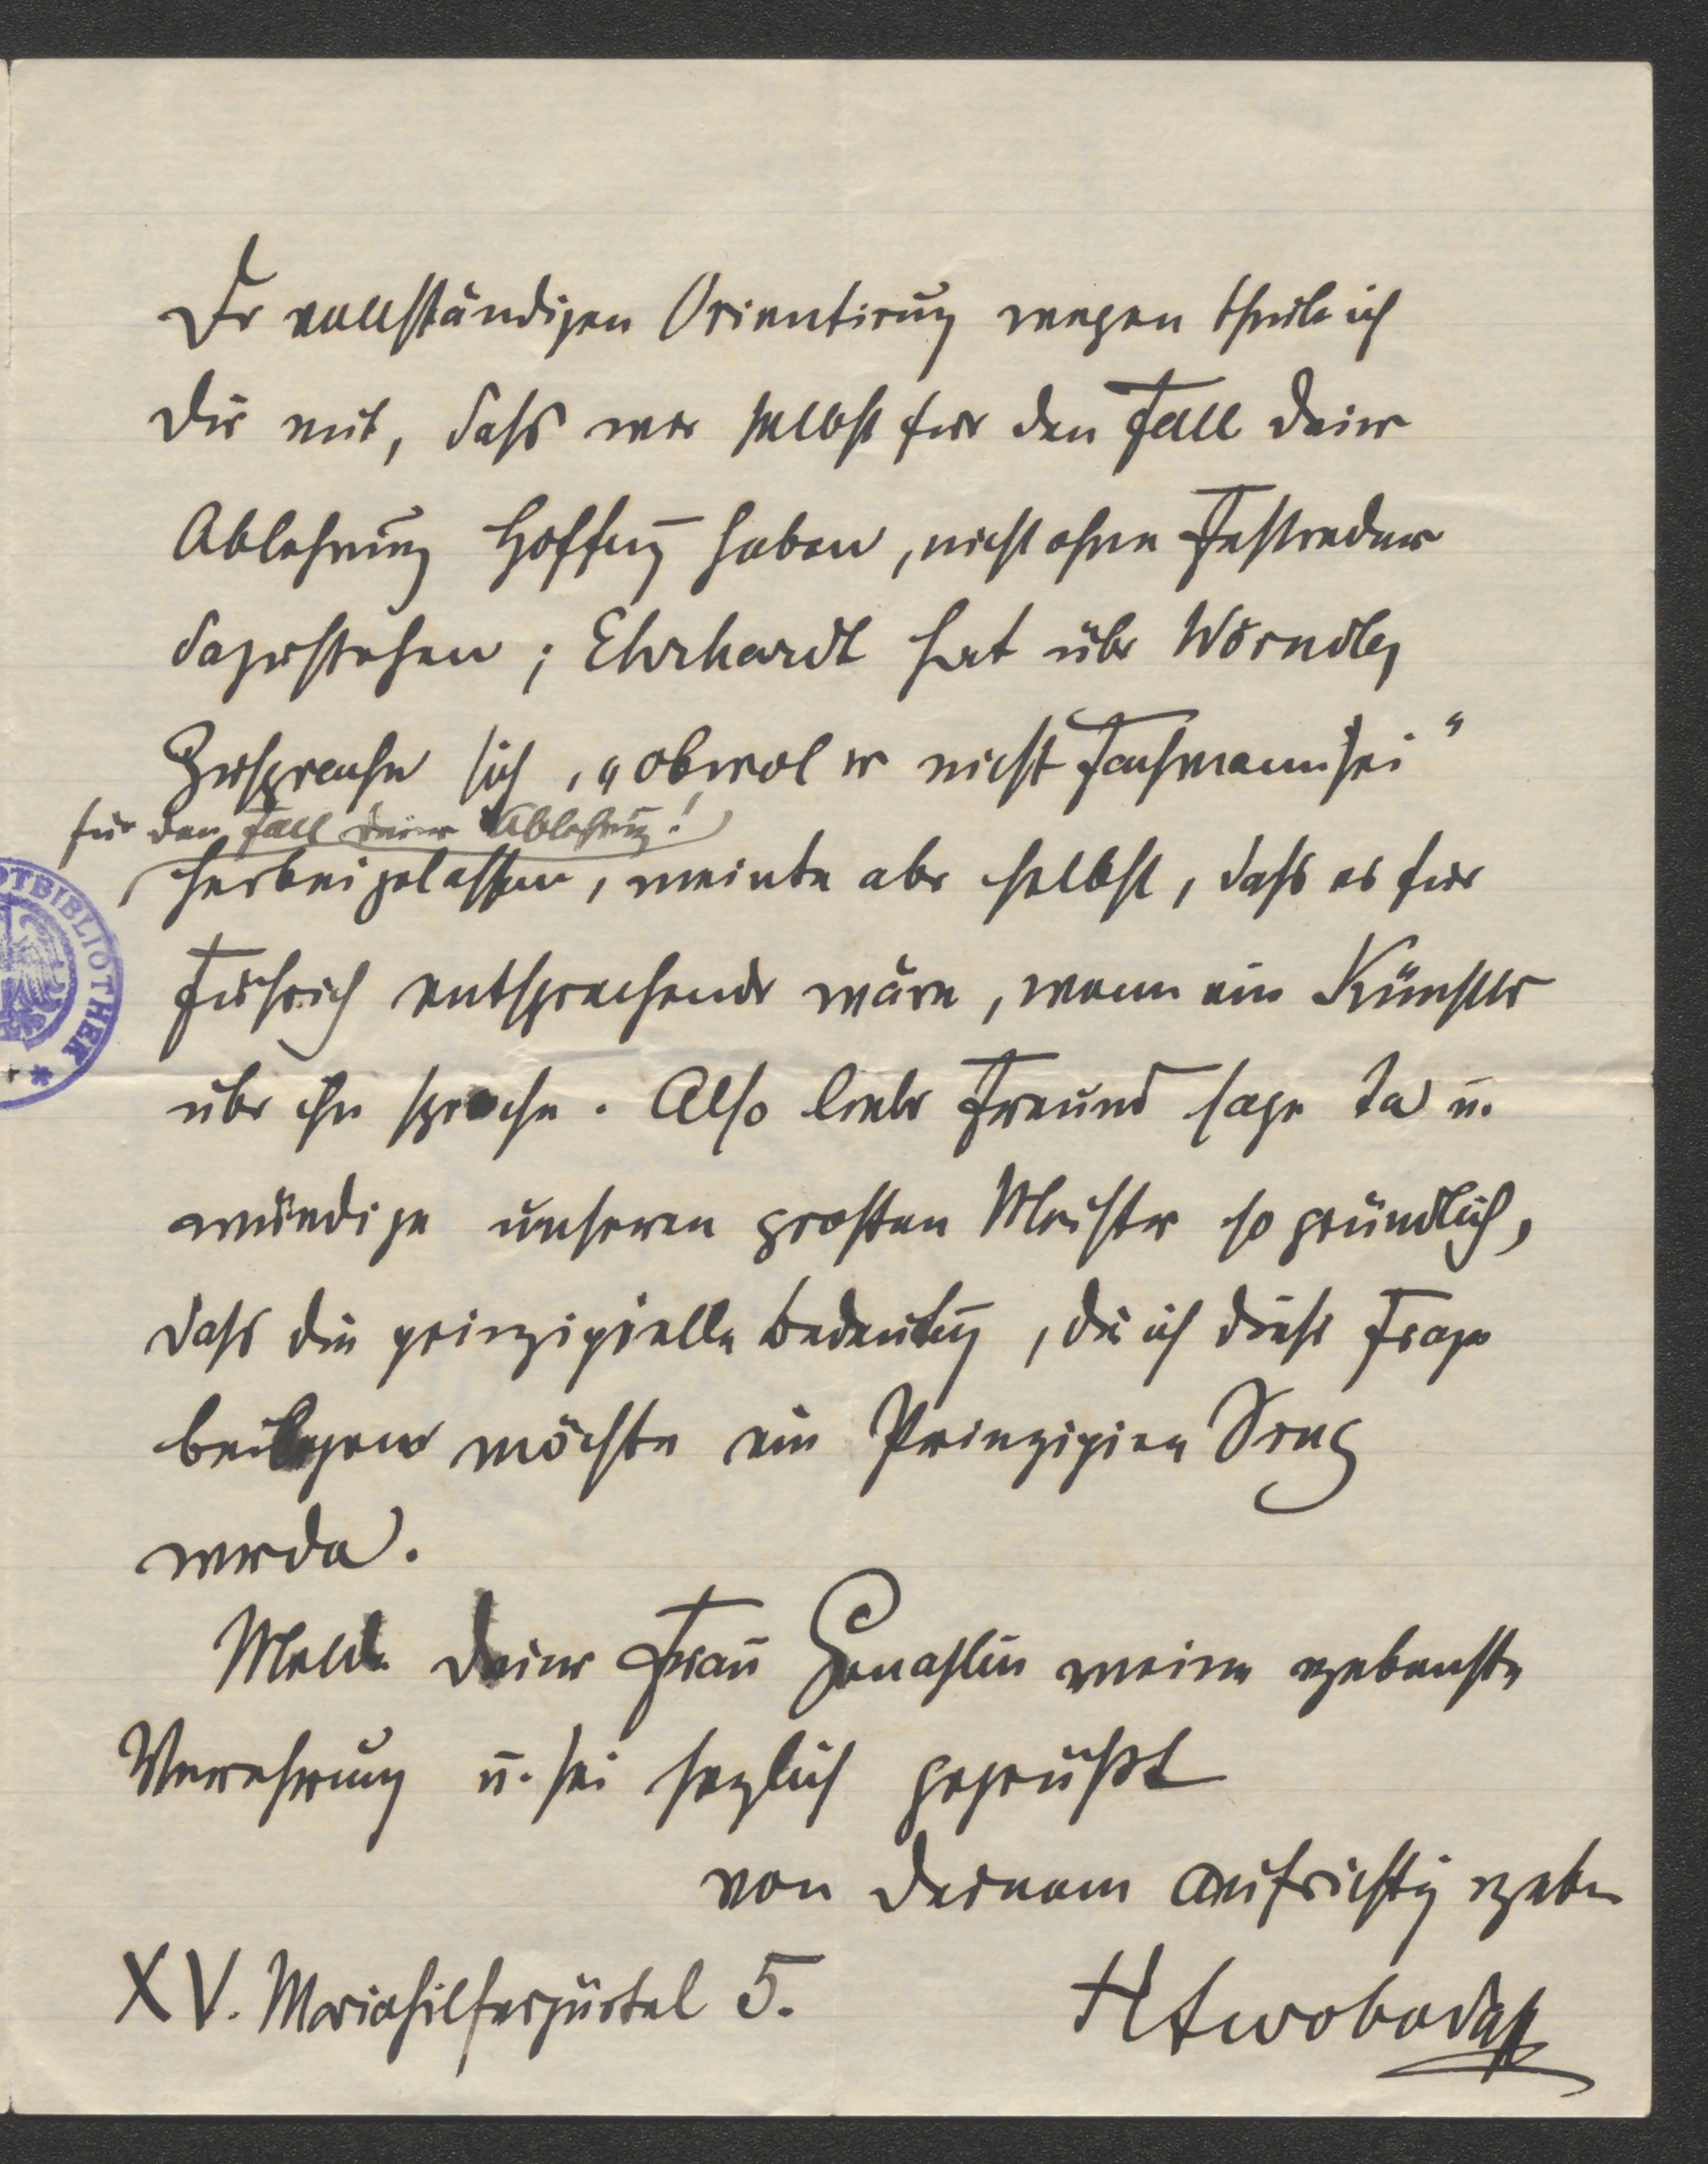 Der vollständigen Orientirung wegen theile ich
Dir mit, dass wir selbst für den Fall Deiner
Ablehnung Hoffnung haben, nicht ohne Festredner
dazustehen; Ehrhardt hat über Wörndles
Zusprache sich, „obwol er nicht Fachmann sei“
für den Fall Deiner Ablehnung!
herbeigelassen, meinte aber selbst, dass es für
Führich entsprechender wäre, wenn ein Künstler
über ihn spreche. Also lieber Freund sage Ja u.
würdige unseren grossen Meister so gründlich,
dass die prinzipielle Bedeutung, die ich dieser Frage
beilegen möchte ein Prinzipien
werde.
Melde Deiner Frau Gemahlin meine ergebenste
Verehrung u. sei herzlich gegrüßt
von Deinem aufrichtig ergeben
XV. Mariahilfergürtel 5.
HSwoboda
OTBIBLIOTHEK *